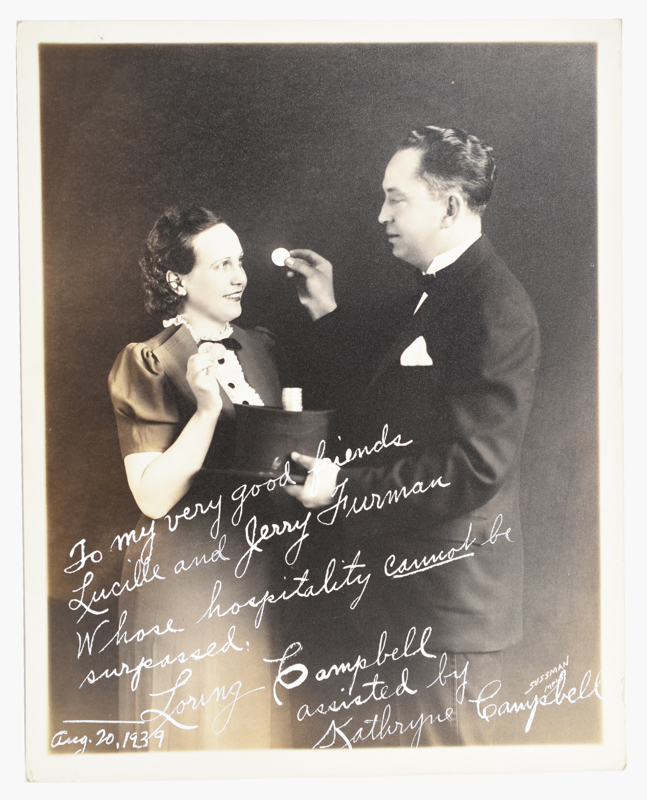 To my very good friends
Lucille and Jerry Furman
Whose hospitality cannot be
surpassed:
Loring Campbell
assisted by
Kathryne Campbell
Aug. 20, 1939
SUSSMAN